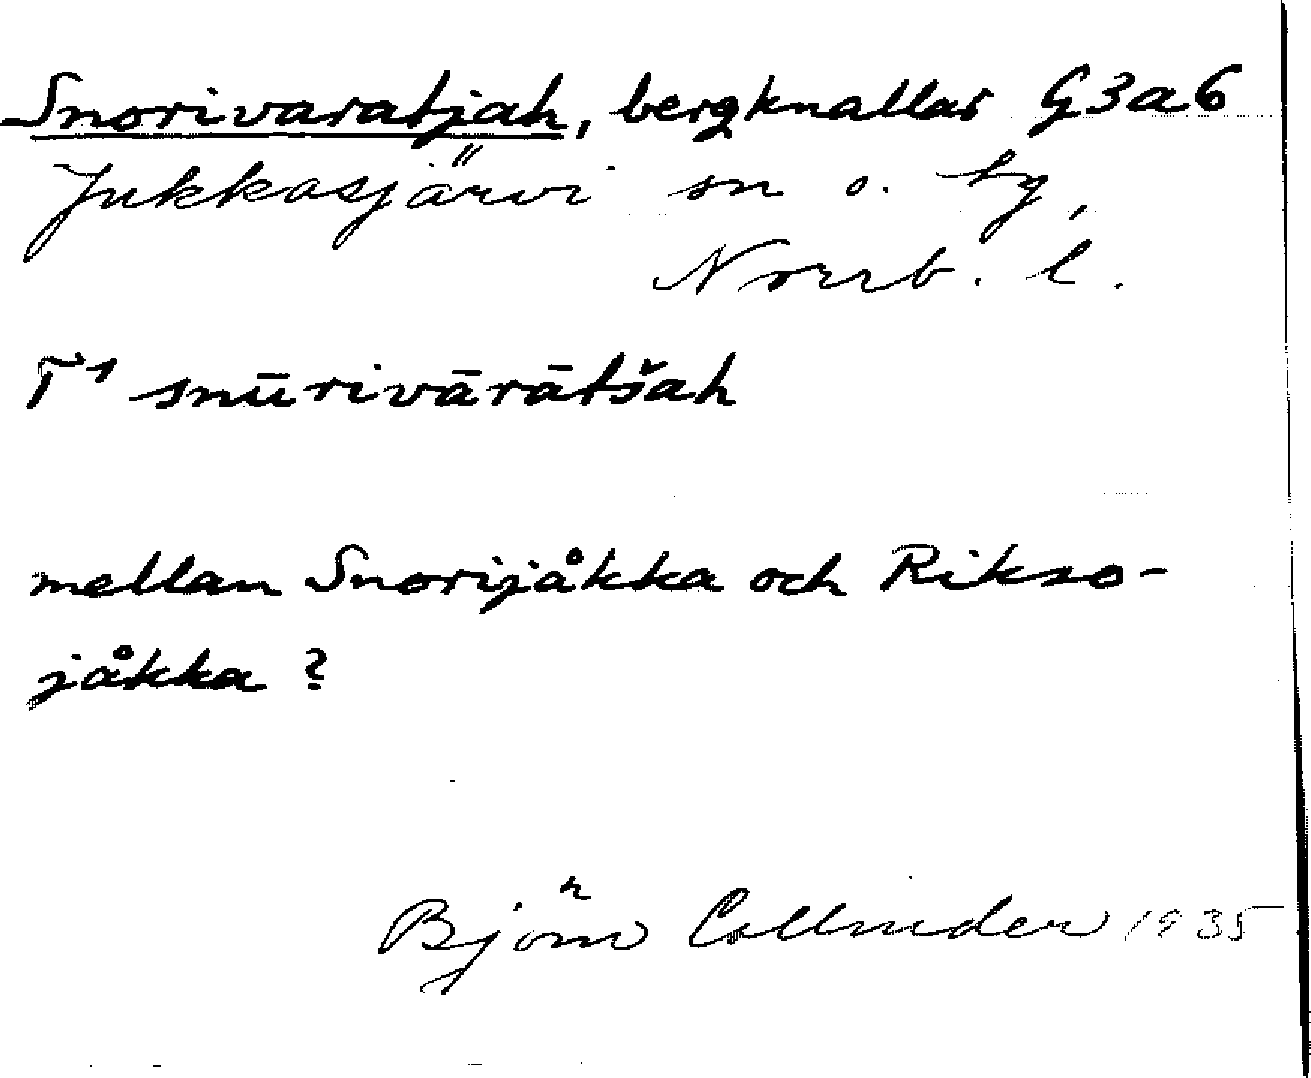 Snorivaratjah, bergknallar G3a6
Jukkasjärvi sn o. tg,
Norrb. l.
T¹ snūrivārātšah
mellan Snorijåkka och Rikso-
jåkka ?
Björn Collinder 1935